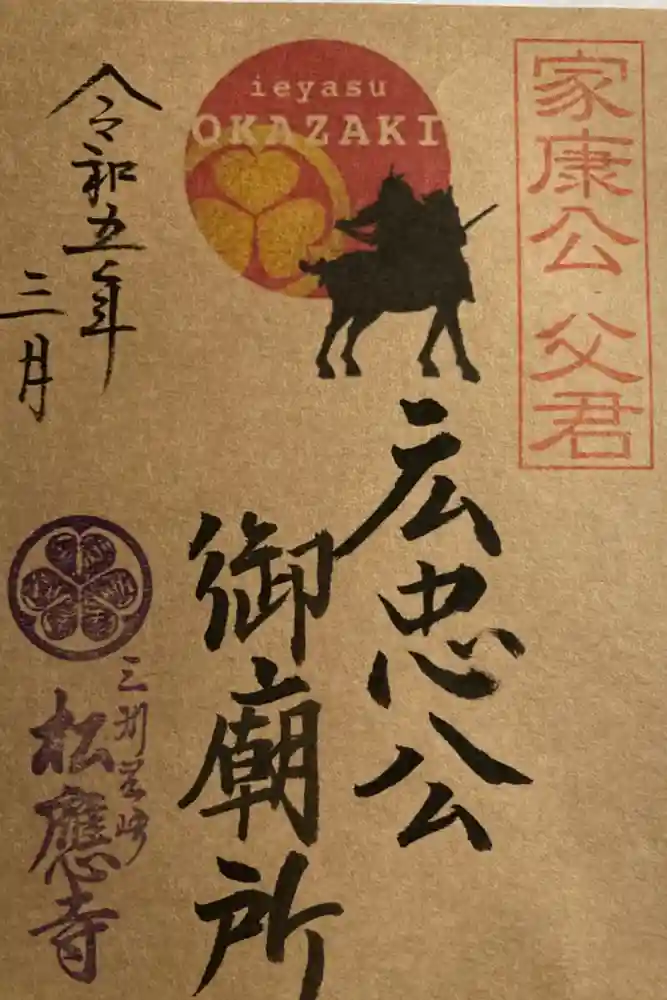 家康公 父君
ieyasu
OKAZAKI
広忠公
御廟所
令和五年
三月
三州岡崎
松應寺